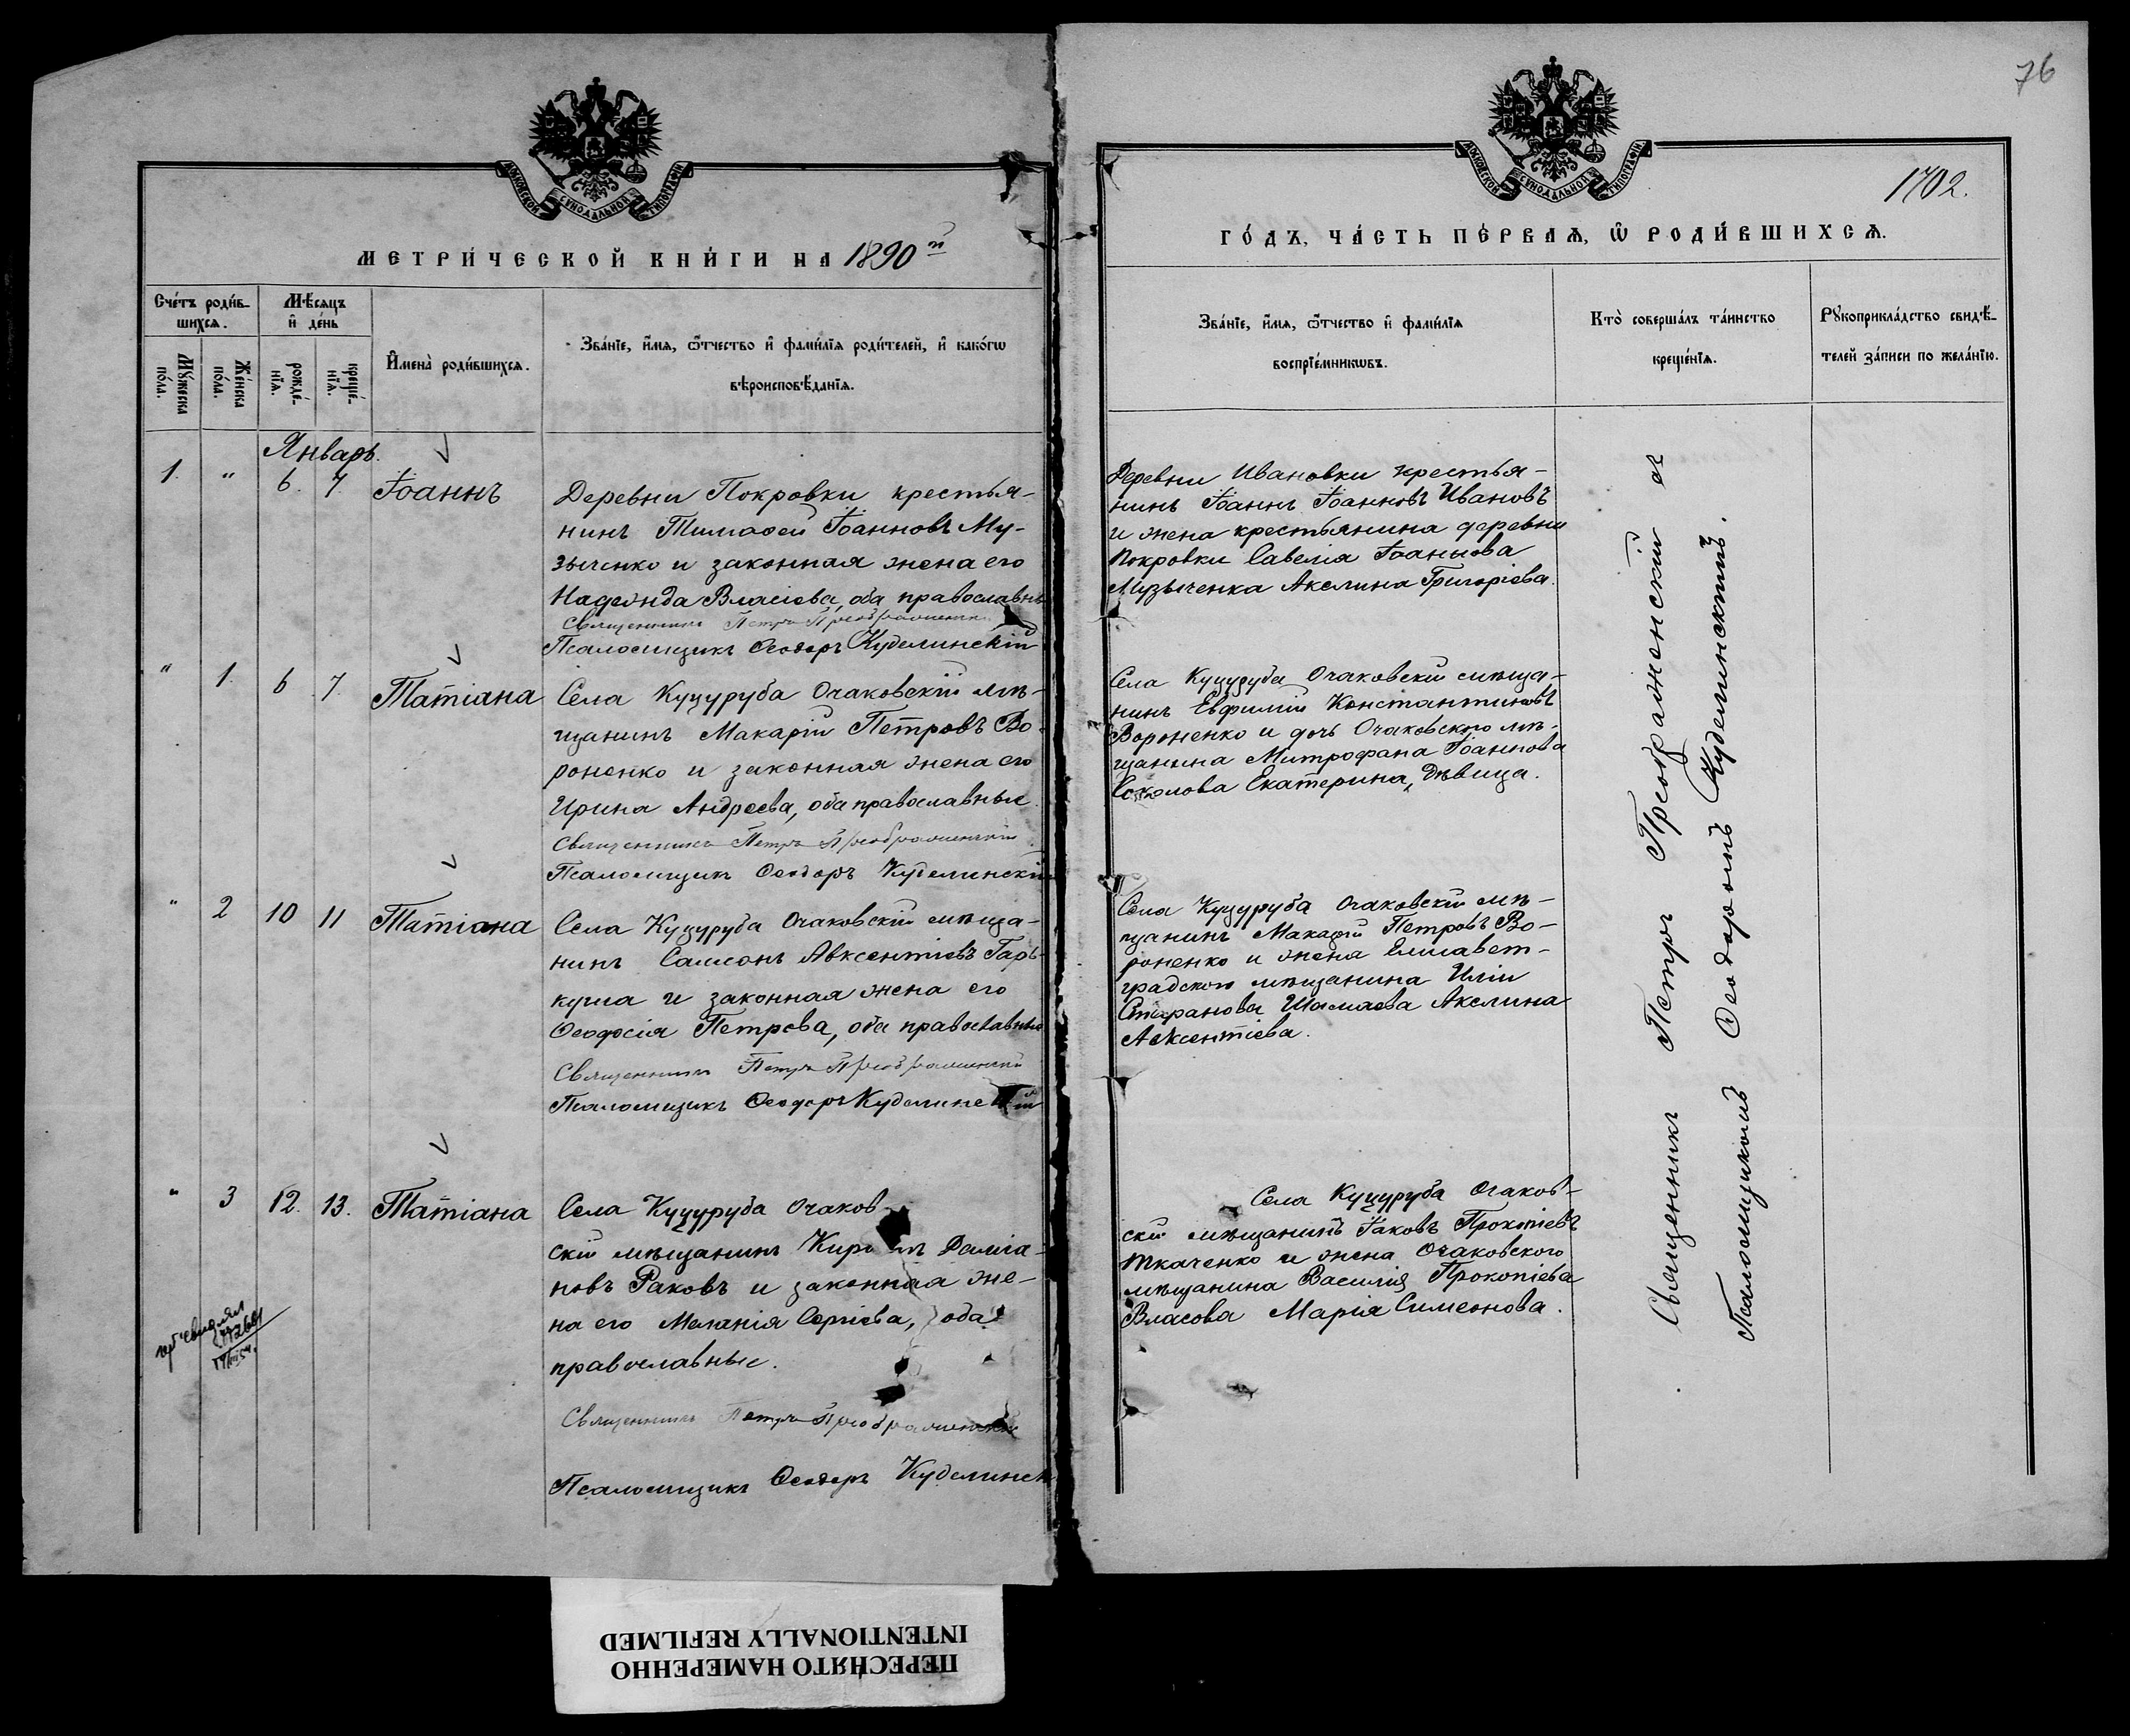 76
1702.
МОСКОВСКОЙ СѴНОДАЛЬНОЙ ТИПОГРАФІИ
МОСКОВСКОЙ СѴНОДАЛЬНОЙ ТИПОГРАФІИ
МЕТРИ́ЧЕСКОЙ КНИ́ГИ НА 1890й
ГО́ДЪ, ЧА́СТЬ ПЕ́РВАѦ, Ѿ РОДИ́ВШИХСѦ.
Сче́тъ роди́в-
шихсѧ.
Мѣ́сѧцъ
и҆ де́нь
Мꙋ́жеска
по́ла.
Же́нска
по́ла.
рожде́-
нїѧ.
креще́-
нїѧ.
И҆мена̀ роди́вшихсѧ.
Зва́нїе, и҆́мѧ, ѻ҆́тчество и҆ фами́лїѧ роди́телей, и҆ како́гѡ
вѣроисповѣ́данїѧ.
Зва́нїе, и҆́мѧ, ѻ҆́тчество и҆ фами́лїѧ
воспрїе́мникѡвъ.
Кто̀ соверша́лъ та́инство
креще́нїѧ.
Рꙋкоприкла́дство свидѣ́-
телей за́писи по жела́нїю.
Январь.
1. " 6. 7. Іоаннъ
Деревни Покровки крестья-
нинъ Тимофей Іоанновъ Му-
зыченко и законная жена его
Надежда Власіева, оба православн
Священникъ Петръ Преображенскій
Псаломщикъ Ѳеодоръ Куделинскій
Деревни Ивановки крестья-
нинъ Іоаннъ Іоанновъ Ивановъ
и жена крестьянина деревни
Покровки Савелія Іоаннова
Музыченка Акилина Григоріева.
" 1. 6 7. Татіана
Села Куцуруба Очаковскій мѣ-
щанинъ Макарій Петровъ Во-
роненко и законная жена его
Ирина Андреева, оба православные.
Священникъ Петръ Преображенскій
Псаломщикъ Ѳеодоръ Куделинскій
Села Куцуруба Очаковскій мѣща-
нинъ Евфимій Константиновъ
Вороненко и дочь Очаковского мѣ-
щанина Митрофана Іоаннова
Соколова Екатерина, дѣвица.
" 2 10 11 Татіана
Села Куцуруба Очаковскій мѣща-
нинъ Самсонъ Авксентіевъ Гарь-
куша и законная жена его
Ѳеодосія Петрова, оба православные
Священникъ Петръ Преображенскій
Псаломщикъ Ѳеодоръ Куделинскій
Села Куцуруба Очаковскій мѣ-
щанинъ Макарій Петровъ Во-
роненко и жена Елисавет-
градского мѣщанина Иліи
Стефанова Шамаева Акилина
Авксентіева.
" 3 12. 13. Татіана
Села Куцуруба Очаков-
скій мѣщанинъ Дамиа-
новъ Раковъ и законная же-
на его Меланія Сергіева, оба
православные.
Священникъ Петръ Преображенскій
Псаломщикъ Ѳеодоръ Куделинск
Села Куцуруба Очаков-
скій мѣщанинъ Іаковъ Прокопіевъ
Ткаченко и жена Очаковского
мѣщанина Василія Прокопіева
Власова Марія Симеонова.
Священникъ Петръ Преображенскій съ
Псаломщикомъ Ѳеодоромъ Куделинскимъ.
ПЕРЕСНЯТО НАМЕРЕННО
INTENTIONALLY REFILMED